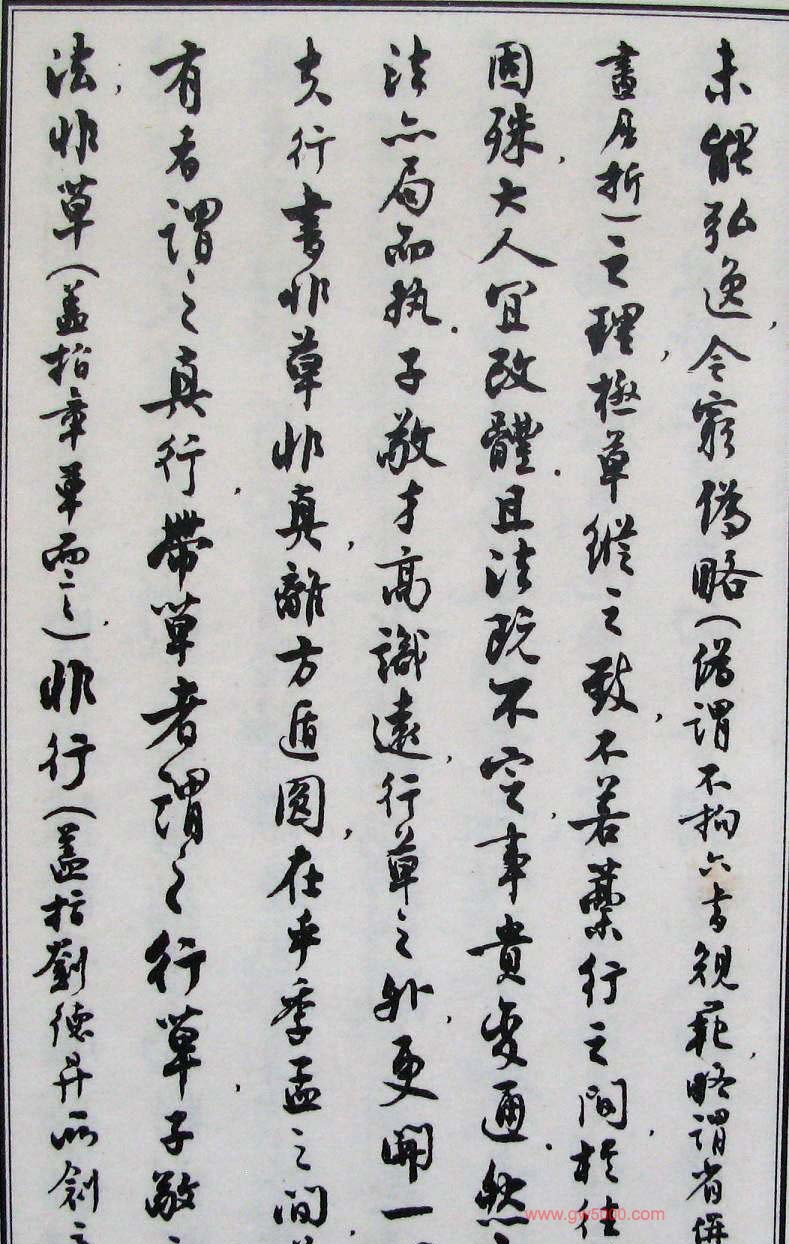 未能弘逸,今窮偽略(偽謂不拘六書規範,略謂省併
畫屈折)之理,極草縱之致,不若藁行之間,於往
固殊,大人宜改體.且法既不定,事貴變通.然
法亦局而执.子敬才高識遠,行草之外,更開一
夫行書非草非真,離方遁圓,在乎季孟之間
有者謂之真行,帶草者謂之行草,子敬
法,非草(盖指章草而言之),非行(盖指劉德昇所創之
www.gw5000.com